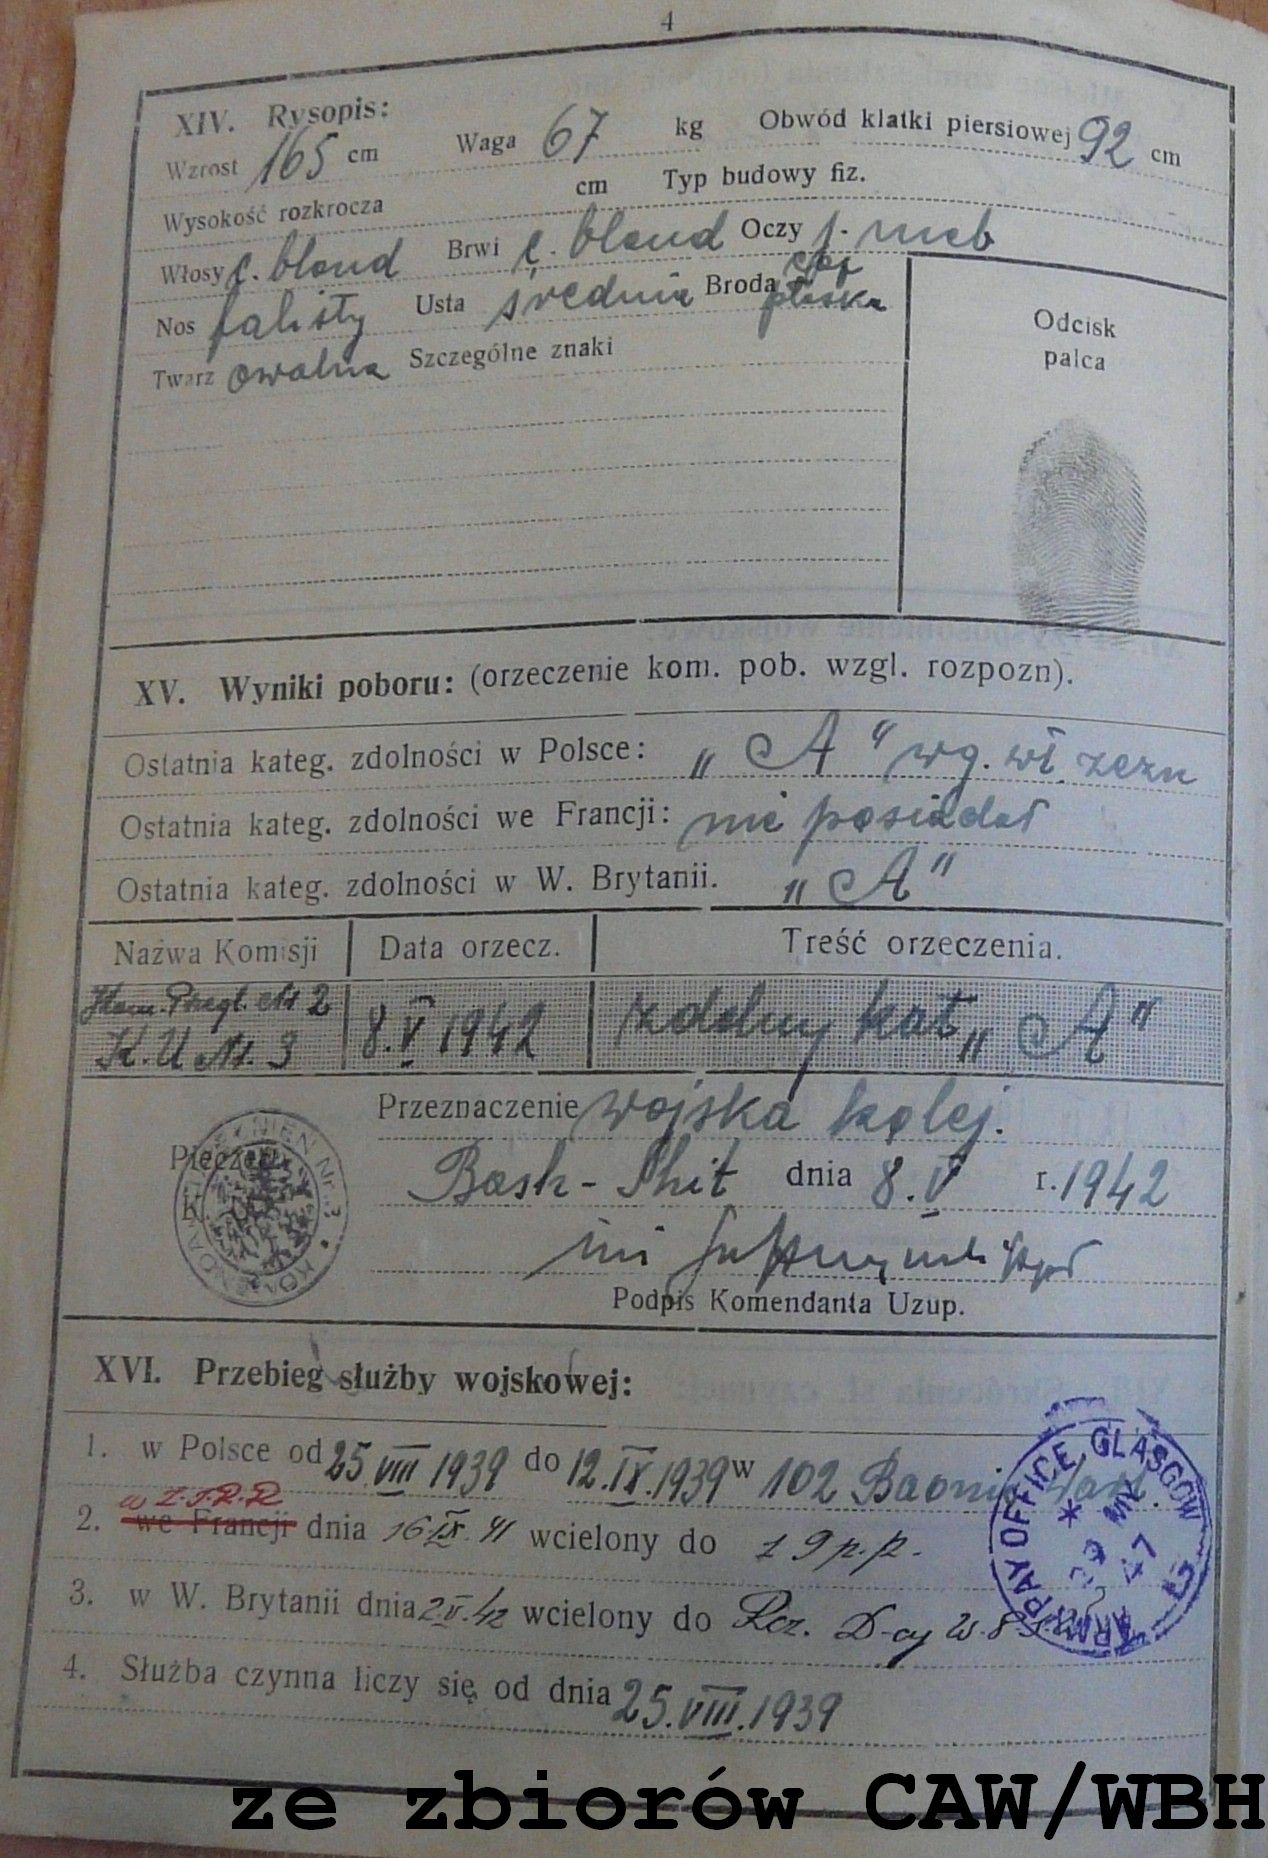 4
XIV. Rysopis:
Wzrost 165 cm Waga 67 kg Obwód klatki piersiowej 92 cm
Wysokość rozkrocza cm Typ budowy fiz.
Włosy c. blond Brwi c. blond Oczy j. nieb
Nos falisty Usta średnie Broda płaska
Twarz owalna Szczególne znaki
Odcisk
palca
XV. Wyniki poboru: (orzeczenie kom. pob. wzgl. rozpozn).
Ostatnia kateg. zdolności w Polsce: „A" wg. wł. zezn
Ostatnia kateg. zdolności we Francji: nie posiadał
Ostatnia kateg. zdolności w W. Brytanii. „A"
Nazwa Komisji Data orzecz. Treść orzeczenia.
Kom. Przegl. Nr 2
K. U Nr. 3 8.V 1942 zdolny kat. „A"
Przeznaczenie wojska kolej.
Pieczęć
K
KOMENDA UZUPEŁNIEŃ Nr. 3
dnia 8.V r. 1942
Podpis Komendanta Uzup.
XVI. Przebieg służby wojskowej:
1. w Polsce od 25 VIII 1939 do 12.IX.1939 w 102 Baonie Wart.
w Z.S.R.R
2. we Francji dnia 16 IX 41 wcielony do 19 p.p.
3. w W. Brytanii dnia 2.V.42 wcielony do D-cy
4. Służba czynna liczy się od dnia 25.VIII.1939
ARMY PAY OFFICE, GLASGOW
29 MY
47
ze zbiorów CAW/WBH